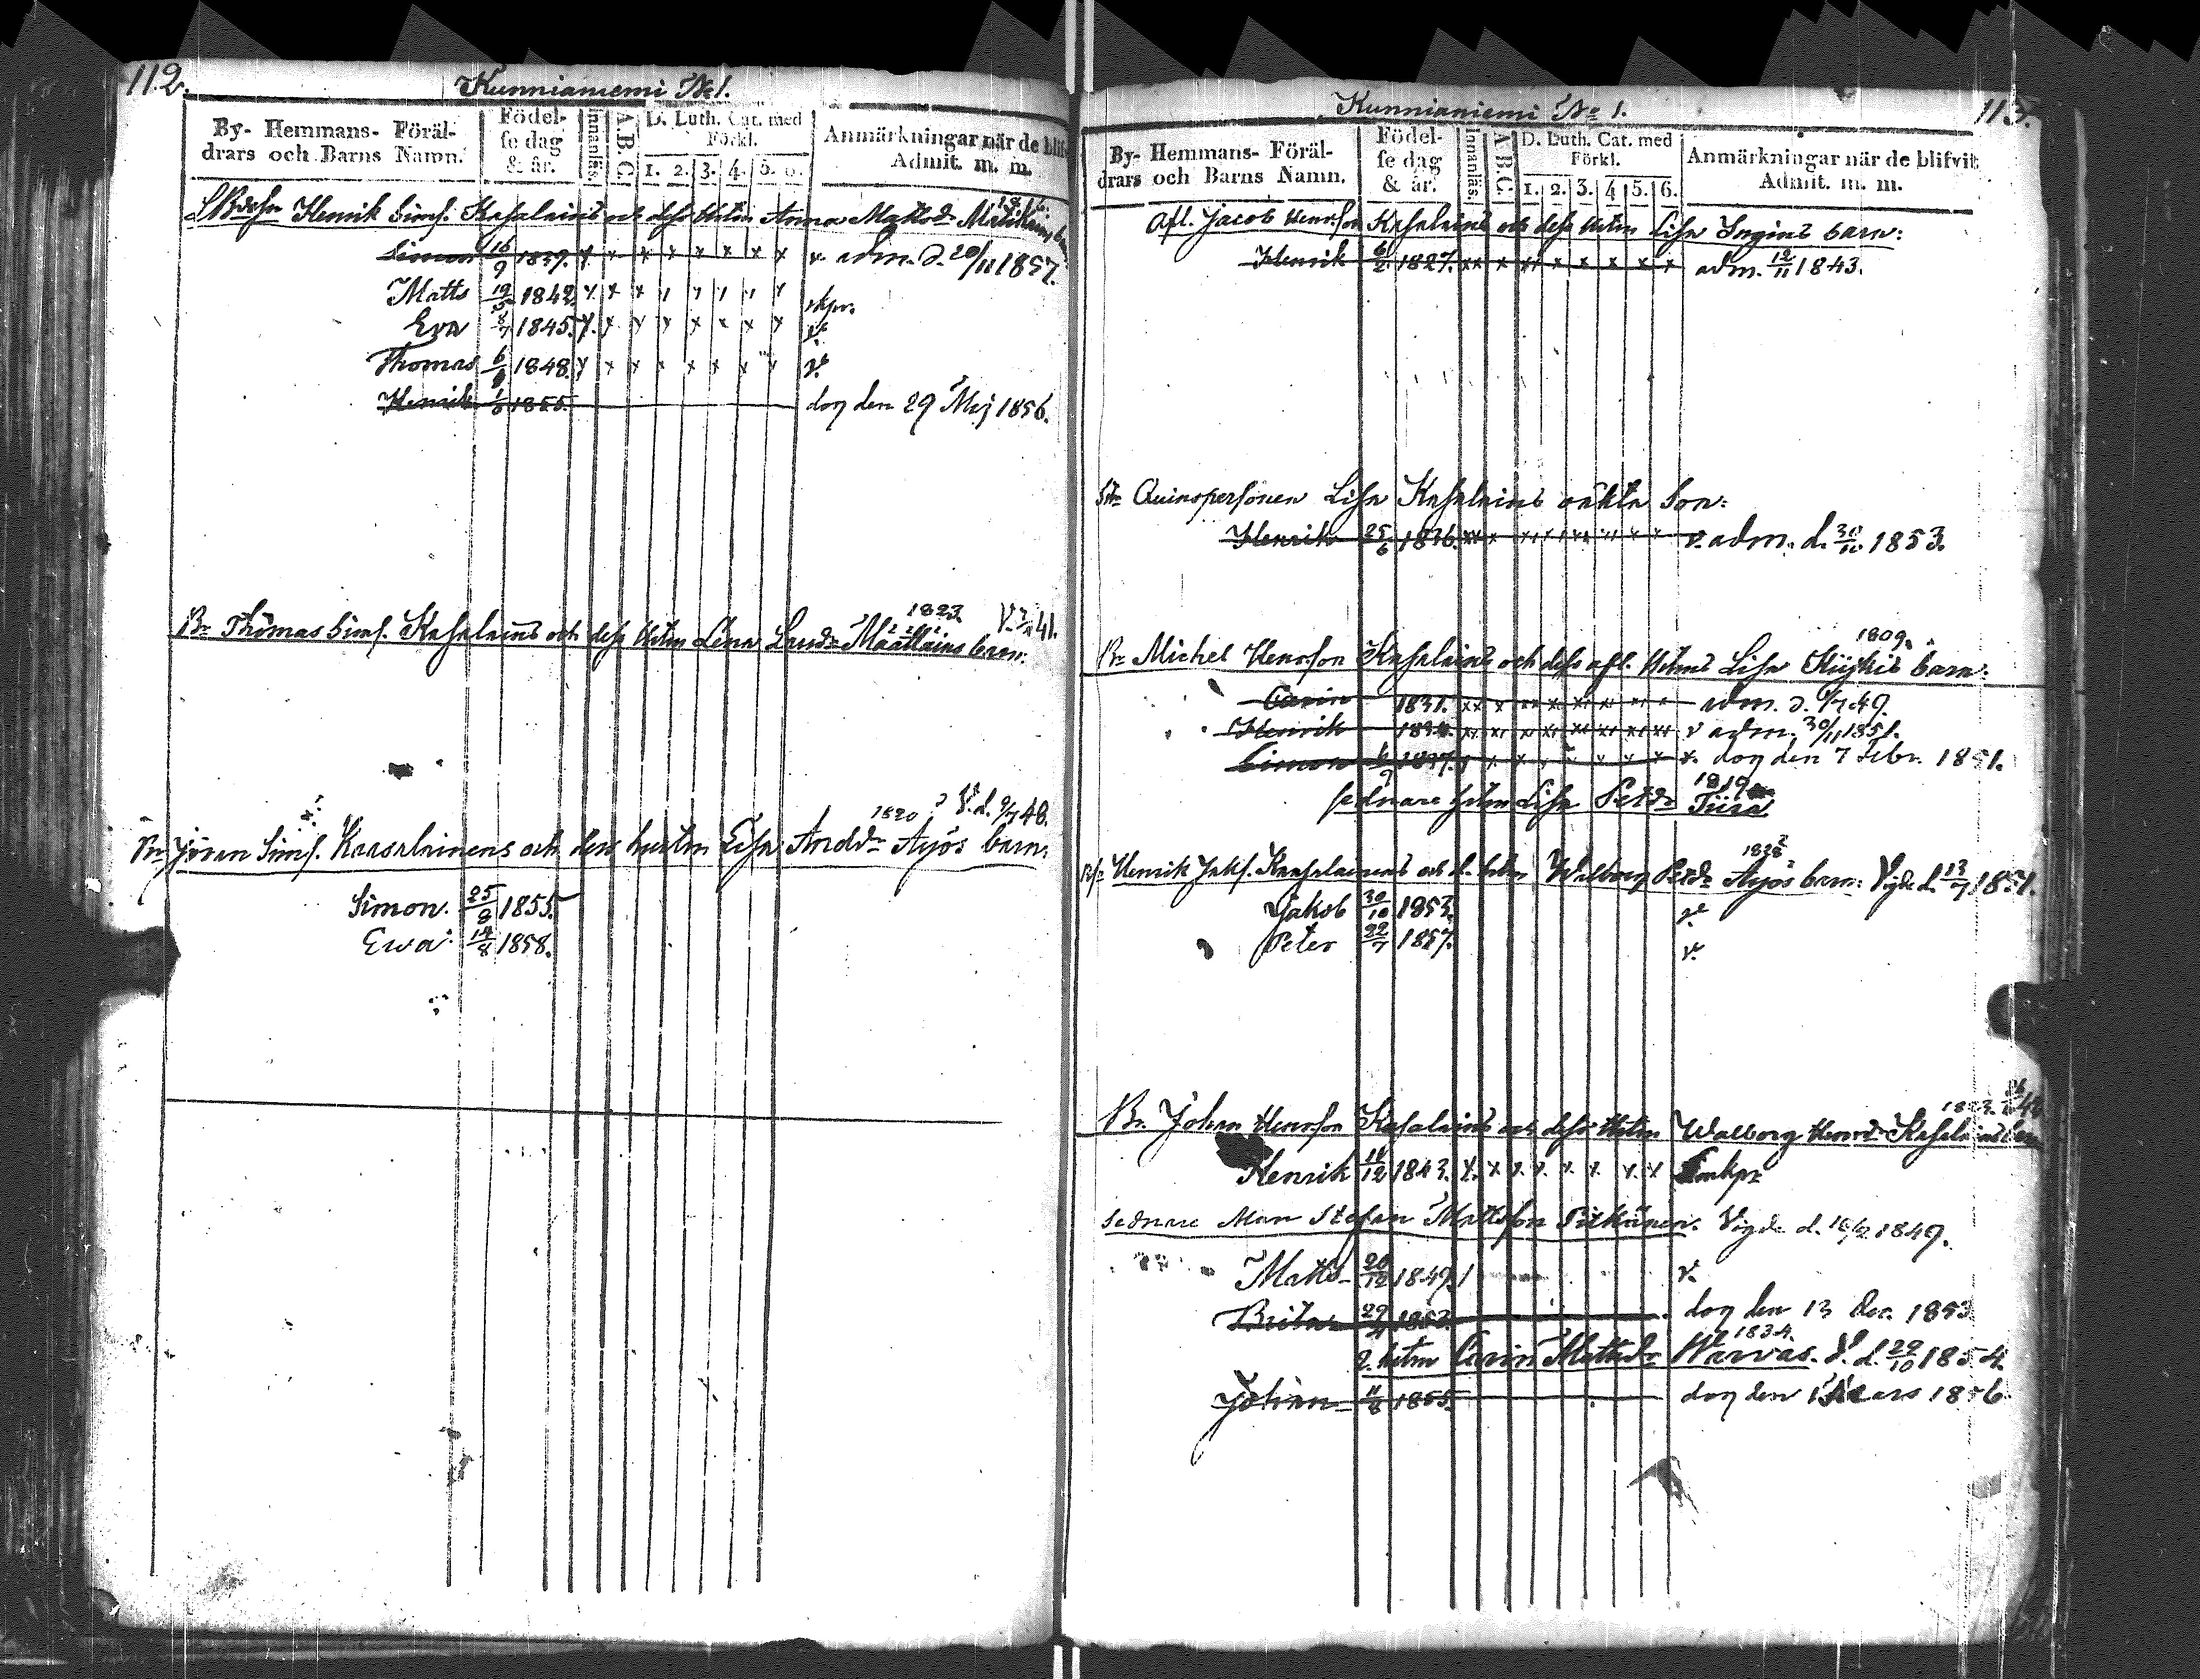 112.
Kunnianiemi No 1.
By- Hemmans- Föräl-
drars och Barns Namn.
Födel-
se dag
& år.
Innanläs.
A.B.C.
D. Luth. Cat. med
Förkl.
1. 2. 3. 4. 5. 6.
Anmärkningar när de blifvit
Admit. m. m.
Henrik Sims. Kasalains och dess Hustru Anna Mattsd:r
Simon 16/9 1839. v. adm. d. 20/11 1857.
Matts 19/5 1842 skpr.
Eva 8/7 1845. v.
Thomas 6/9 1848. v.
Henrik 1/8 1855. dog den 29 Maj 1856.
1823. V. 41.
Br. Thomas Sims. Kasalains och dess Hustru Lena Laurd:r Määttäins barn:
1820 V. d. 9/7 48.
Br. Jöran Sims. Kaasalainens och dess hustru Lisa Andd:r Äyös barn:
Simon. 25/8 1855.
Ewa 14/8 1858.
113.
Kunnianiemi No 1.
By- Hemmans- Föräl-
drars och Barns Namn.
Födel-
se dag
& år.
Innanläs.
A.B.C.
D. Luth. Cat. med
Förkl.
1. 2. 3. 4. 5. 6.
Anmärkningar när de blifvit
Admit. m. m.
Afl. Jacob Henrsson Kasalains och dess Hustru Lisa Ingins barn:
Henrik 6/2 1827. adm. 12/11 1843.
Qvinspersonen Lisa Kasalains oäkta Son:
Henrik 25/6 1836. v. adm. d. 30/10 1853.
1809.
Br. Michel Henrsson Kasalains och dess afl. Hustrus Lisa barn:
Carin 1831. adm. d. 49.
Henrik 1834. v adm. 30/11 1851.
Simon 6/9 1837. v. dog den 7 Febr. 1851.
1819
sednare hustru Lisa Petd:r Tiira
1828
Henrik Jaks. Kaasalainens och d. hustru Walborg Petd:r Äyös barn: Vigde d. 13/7 1851.
Jakob 30/10 1853. v.
Peter 22/7 1857. v.
Br. Johan Henrsson Kasalains och dess Hustru Walborg Henrd:r Kasalains barn
Henrik 14/12 1843.
sednare Man Stefan Mattsson Pitkänen. Vigde d. 1849.
Matts 20/12 1849. v.
Brita 1853. dog den 13 Dec. 1853
1834.
2. hustru Carin Mattsd:r Warvas. V. d. 29/10 1854.
Johan 11/8 1855. dog den Mars 1856